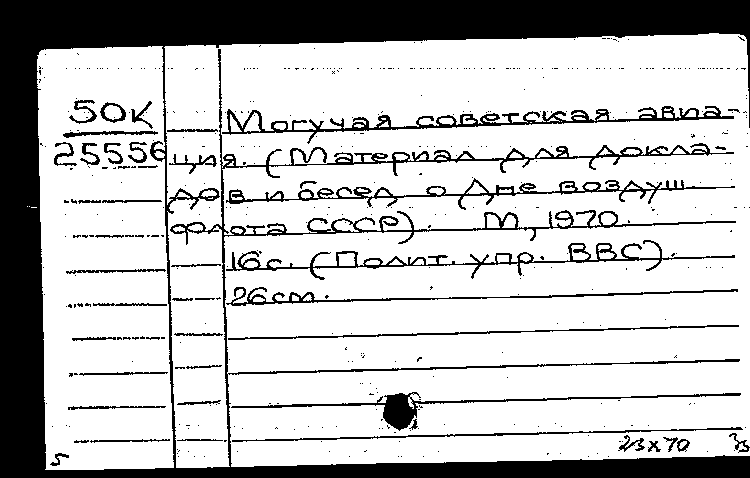 50К
25556
Могучая советская авиа-
ция. (Материал для докла-
дов и бесед о Дне воздуш.
флота СССР). М., 1970.
16с. (Полит. упр. ВВС).
26см.
23х70
5